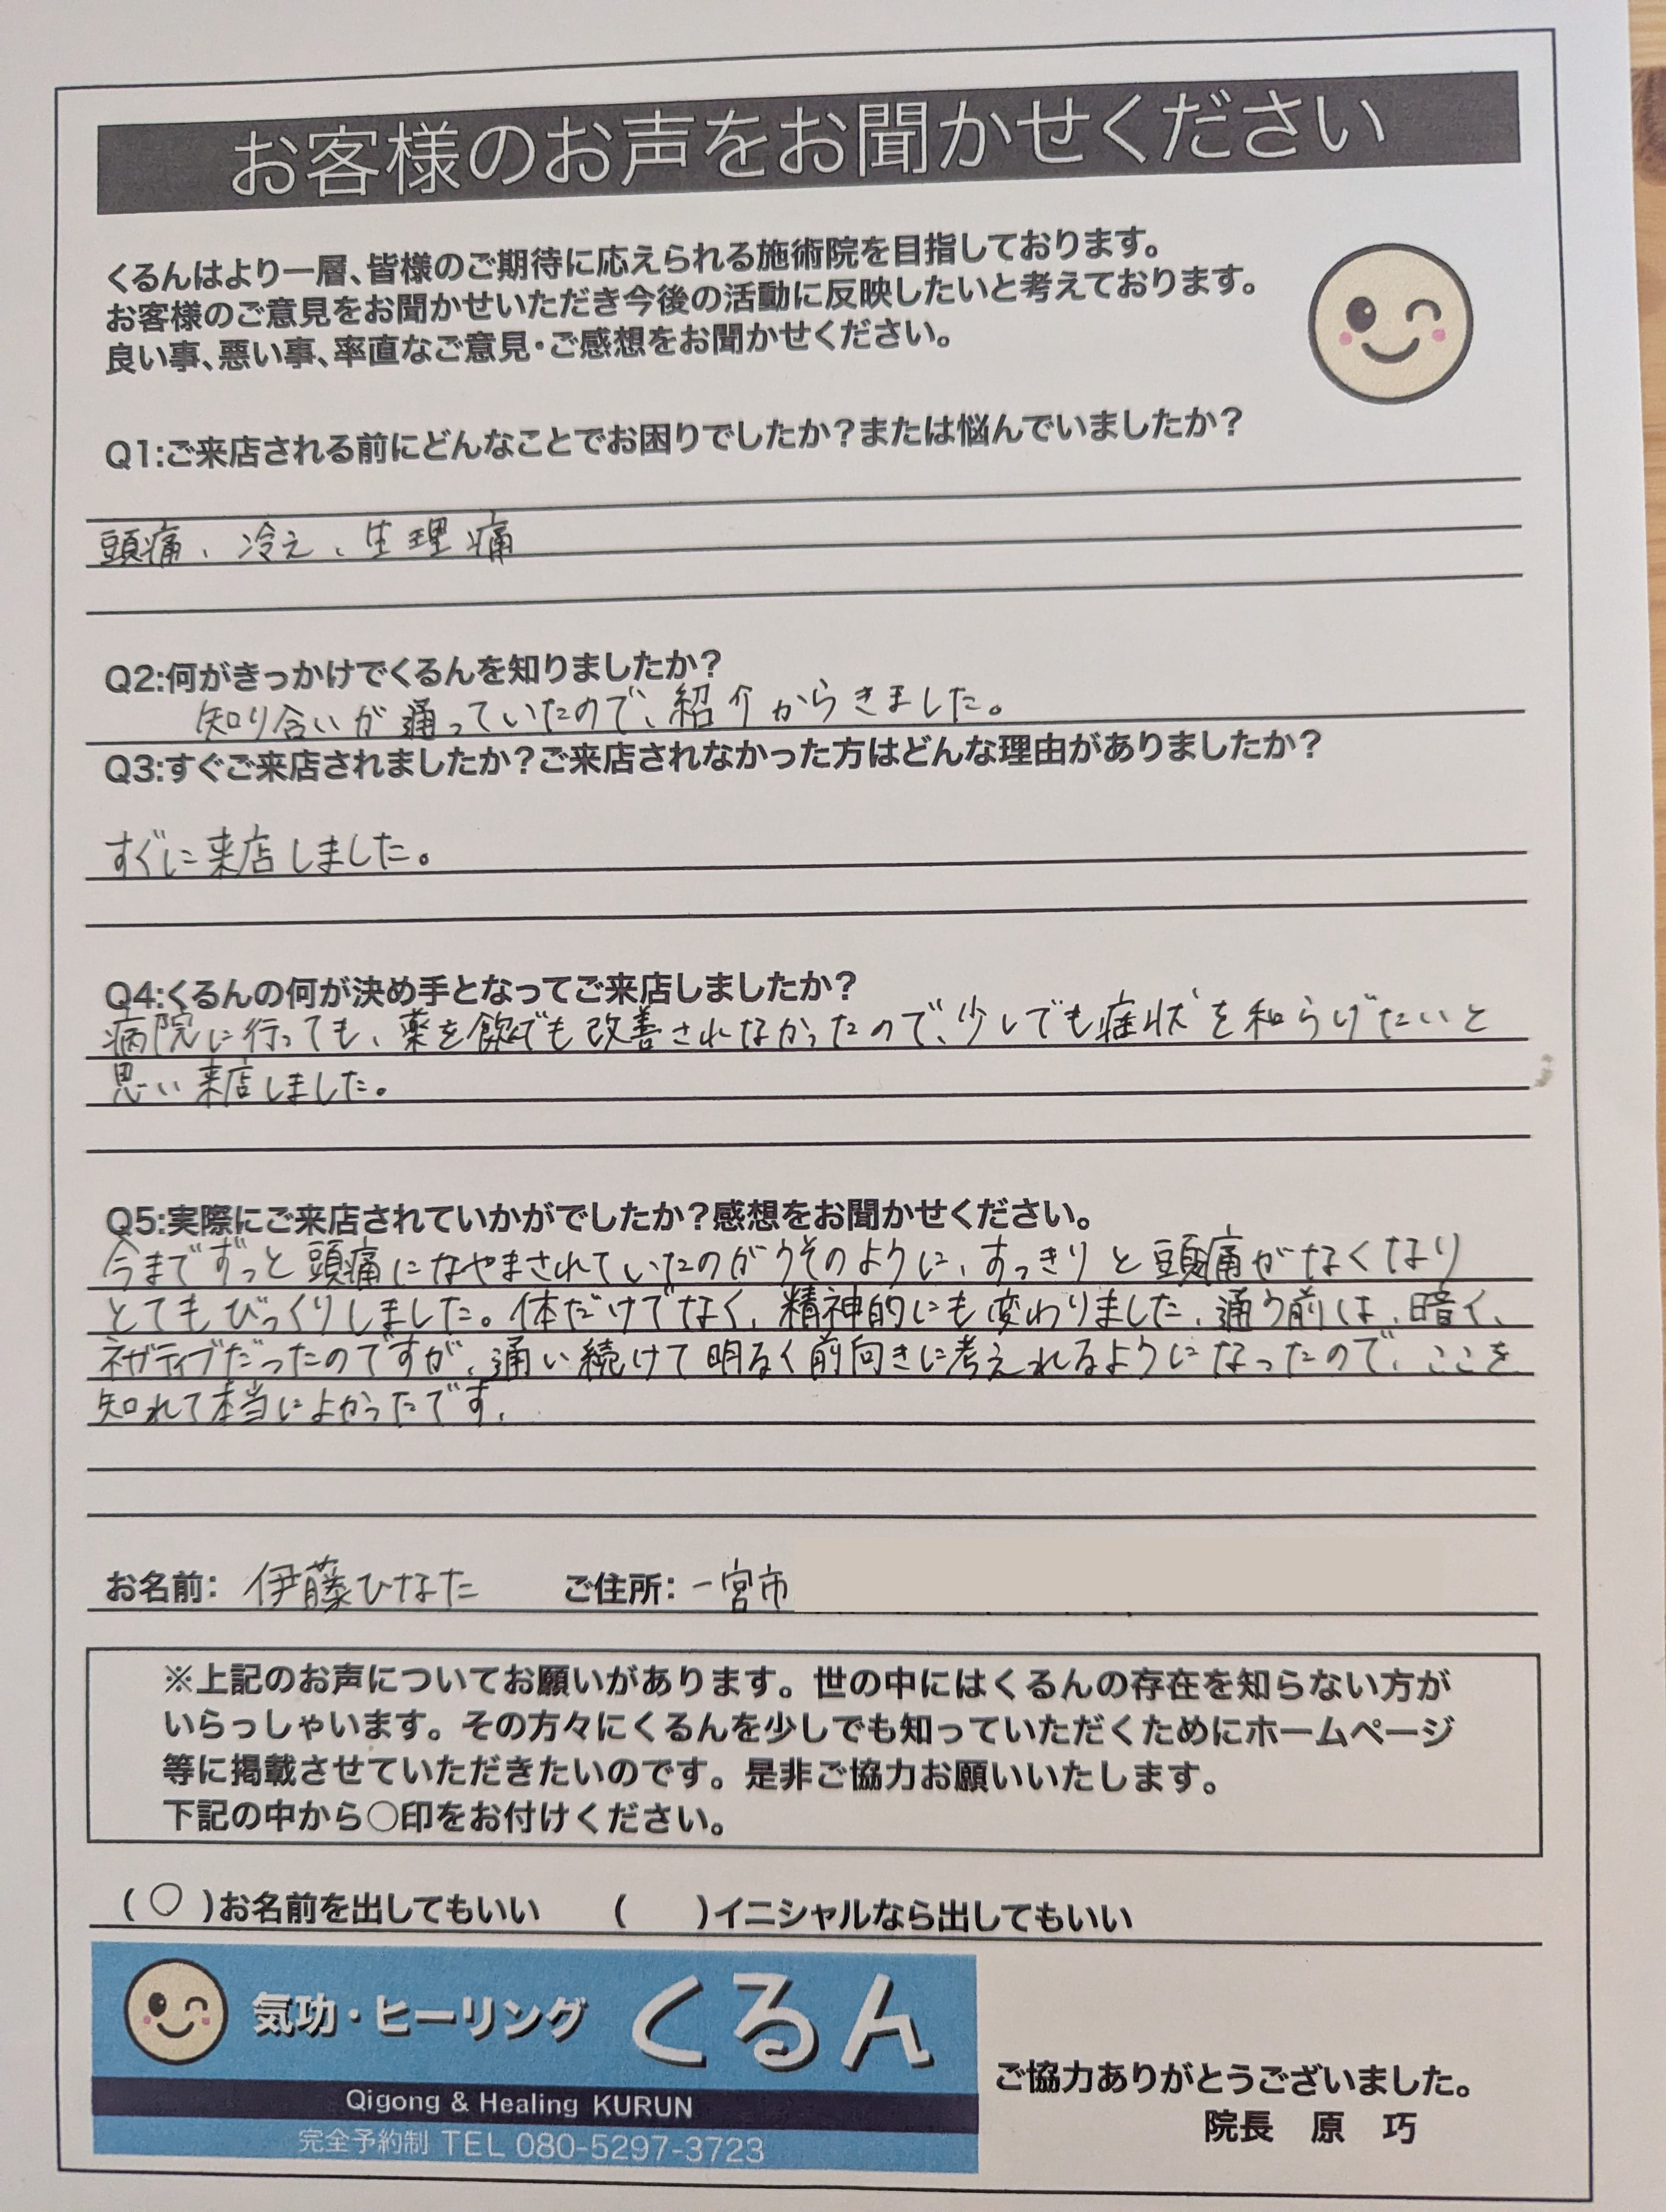 お客様のお声をお聞かせください
くるんはより一層、皆様のご期待に応えられる施術院を目指しております。
お客様のご意見をお聞かせいただき今後の活動に反映したいと考えております。
良い事、悪い事、率直なご意見・ご感想をお聞かせください。
Q1:ご来店される前にどんなことでお困りでしたか？または悩んでいましたか？
頭痛、冷え、生理痛
Q2:何がきっかけでくるんを知りましたか？
知り合いが通っていたので、紹介からきました。
Q3:すぐご来店されましたか？ご来店されなかった方はどんな理由がありましたか？
すぐに来店しました。
Q4:くるんの何が決め手となってご来店しましたか？
病院に行っても、薬を飲でも改善されなかったので、少しでも症状を和らげたいと
思い来店しました。
Q5:実際にご来店されていかがでしたか？感想をお聞かせください。
今までずっと頭痛になやまされていたのがうそのように、すっきりと頭痛がなくなり
とてもびっくりしました。体だけでなく、精神的にも変わりました、通う前は、暗く、
ネガティブだったのですが、通い続けて明るく前向きに考えれるようになったので、ここを
知れて本当によかったです。
お名前：伊藤ひなた　ご住所：一宮市
※上記のお声についてお願いがあります。世の中にはくるんの存在を知らない方が
いらっしゃいます。その方々にくるんを少しでも知っていただくためにホームページ
等に掲載させていただきたいのです。是非ご協力お願いいたします。
下記の中から○印をお付けください。
（○）お名前を出してもいい　（　）イニシャルなら出してもいい
気功・ヒーリング くるん
Qigong & Healing KURUN
完全予約制 TEL 080-5297-3723
ご協力ありがとうございました。
院長　原　巧